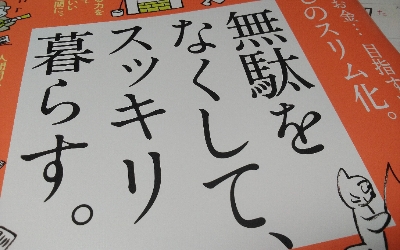 お金…目指す
のスリム化。
無駄を
なくして、
スッキリ
暮らす。